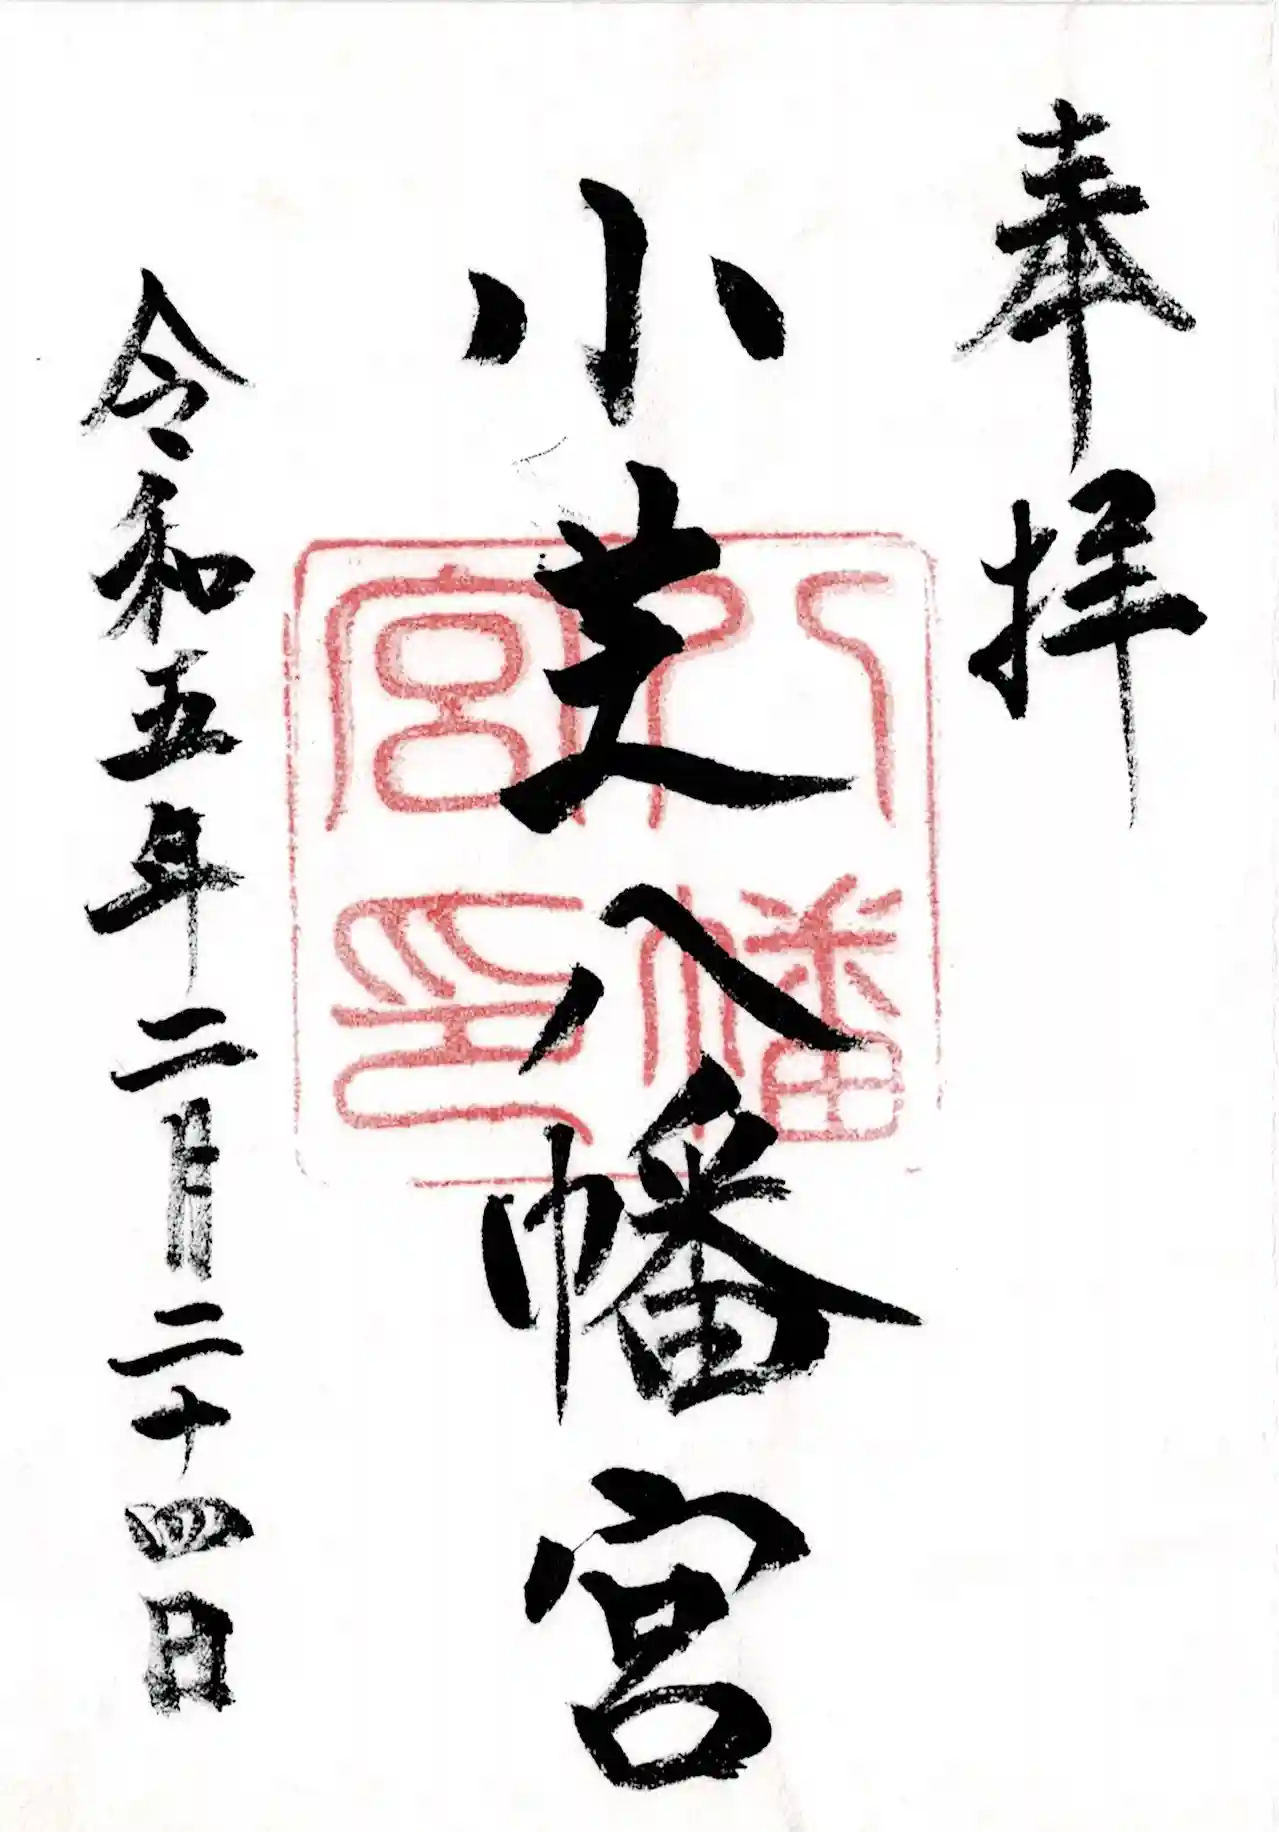 奉拝
小芝八幡宮
八幡宮印
令和五年二月二十四日